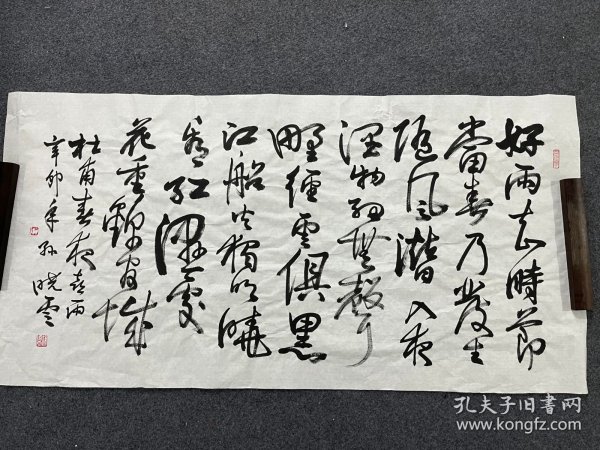 好雨知時節
當春乃發生
隨風潛入夜
潤物細無聲
野徑雲俱黑
江船火獨明曉
看紅濕處
花重錦官城
杜甫春夜喜雨
辛卯年孫曉雲
孔夫子旧書网
www.kongfz.com